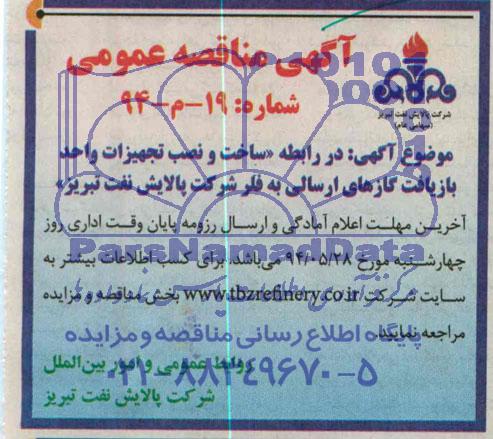 آگهی مناقصه عمومی
شماره: ۱۹-م-۹۴
شرکت پالایش نفت تبریز
(سهامی عام)
موضوع آگهی: در رابطه «ساخت و نصب تجهیزات واحد
بازیافت گازهای ارسالی به فلر شرکت پالایش نفت تبریز»
آخرین مهلت اعلام آمادگی و ارسال رزومه پایان وقت اداری روز
چهارشنبه مورخ ۹۴/۰۵/۲۸ می‌باشد. برای کسب اطلاعات بیشتر به
سایت شرکت www.tbzrefinery.co.ir بخش مناقصه و مزایده
مراجعه نمایید.
روابط عمومی و امور بین‌الملل
شرکت پالایش نفت تبریز
ParsNamadData
پایگاه اطلاع رسانی مناقصه و مزایده
۰۲۱-۸۸۳۴۹۶۷۰-۵